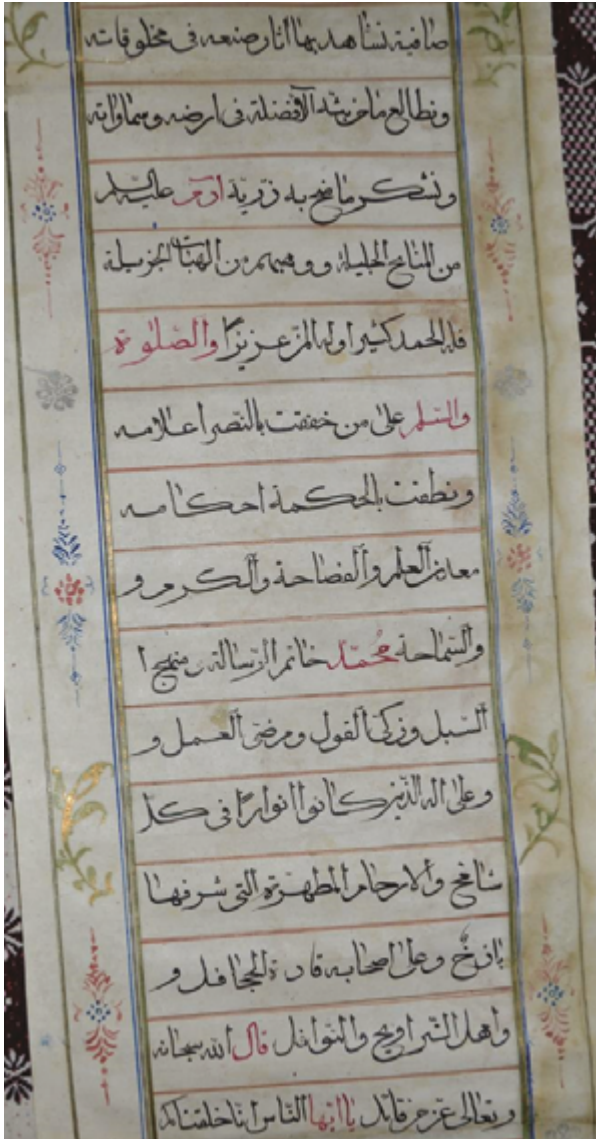 صافية نشاهد بها اثار صنعه فى مخلوقاته
ونطالع ما فى ارضه وسماواته
ونشكر ما منح به ذرية ادم عليه السلم
من المنايح الجليلة ووهبهم من الهبات الجزيلة
فله الحمد كثيرا وله عزيزا والصلوة
والسلم على من خفقت بالنصر اعلامه
ونطقت بالحكمة احكامه
معادن العلم والفصاحة والكرم و
والسماحة محمد خاتم الرسالة منهج ا
السبل وزكى القول ومرضى العمل و
وعلى اله الذين كانوا انوارا فى كل
شامخ والارحام المطهرة التى شرفها
باذخ وعلى اصحابه قادة الجحافل و
واهل التراويح والنوافل قال الله سبحانه
وتعالى عز من قائل يا ايها الناس انا خلقناكم